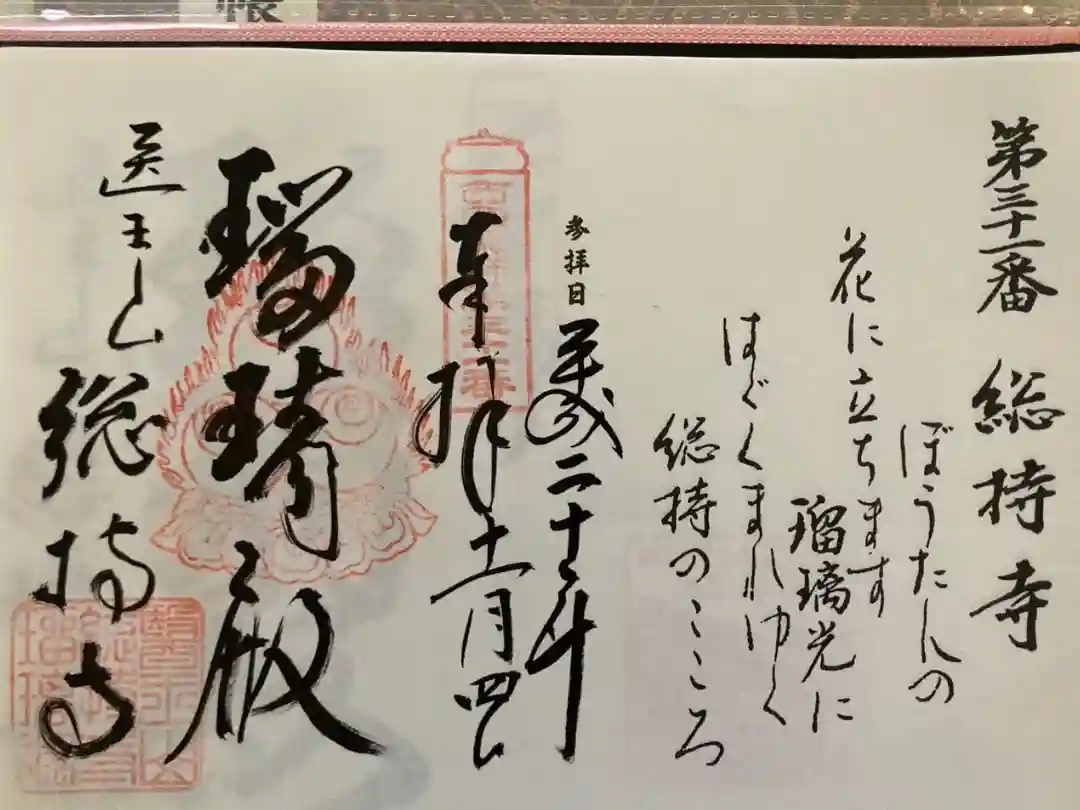 第三十一番 総持寺
ぼうたんの
花に立ちます
瑠璃光に
はぐくまれゆく
総持のこころ
参拝日
平成二十年
奉拝
十一月四日
瑠璃殿
医王山 総持寺